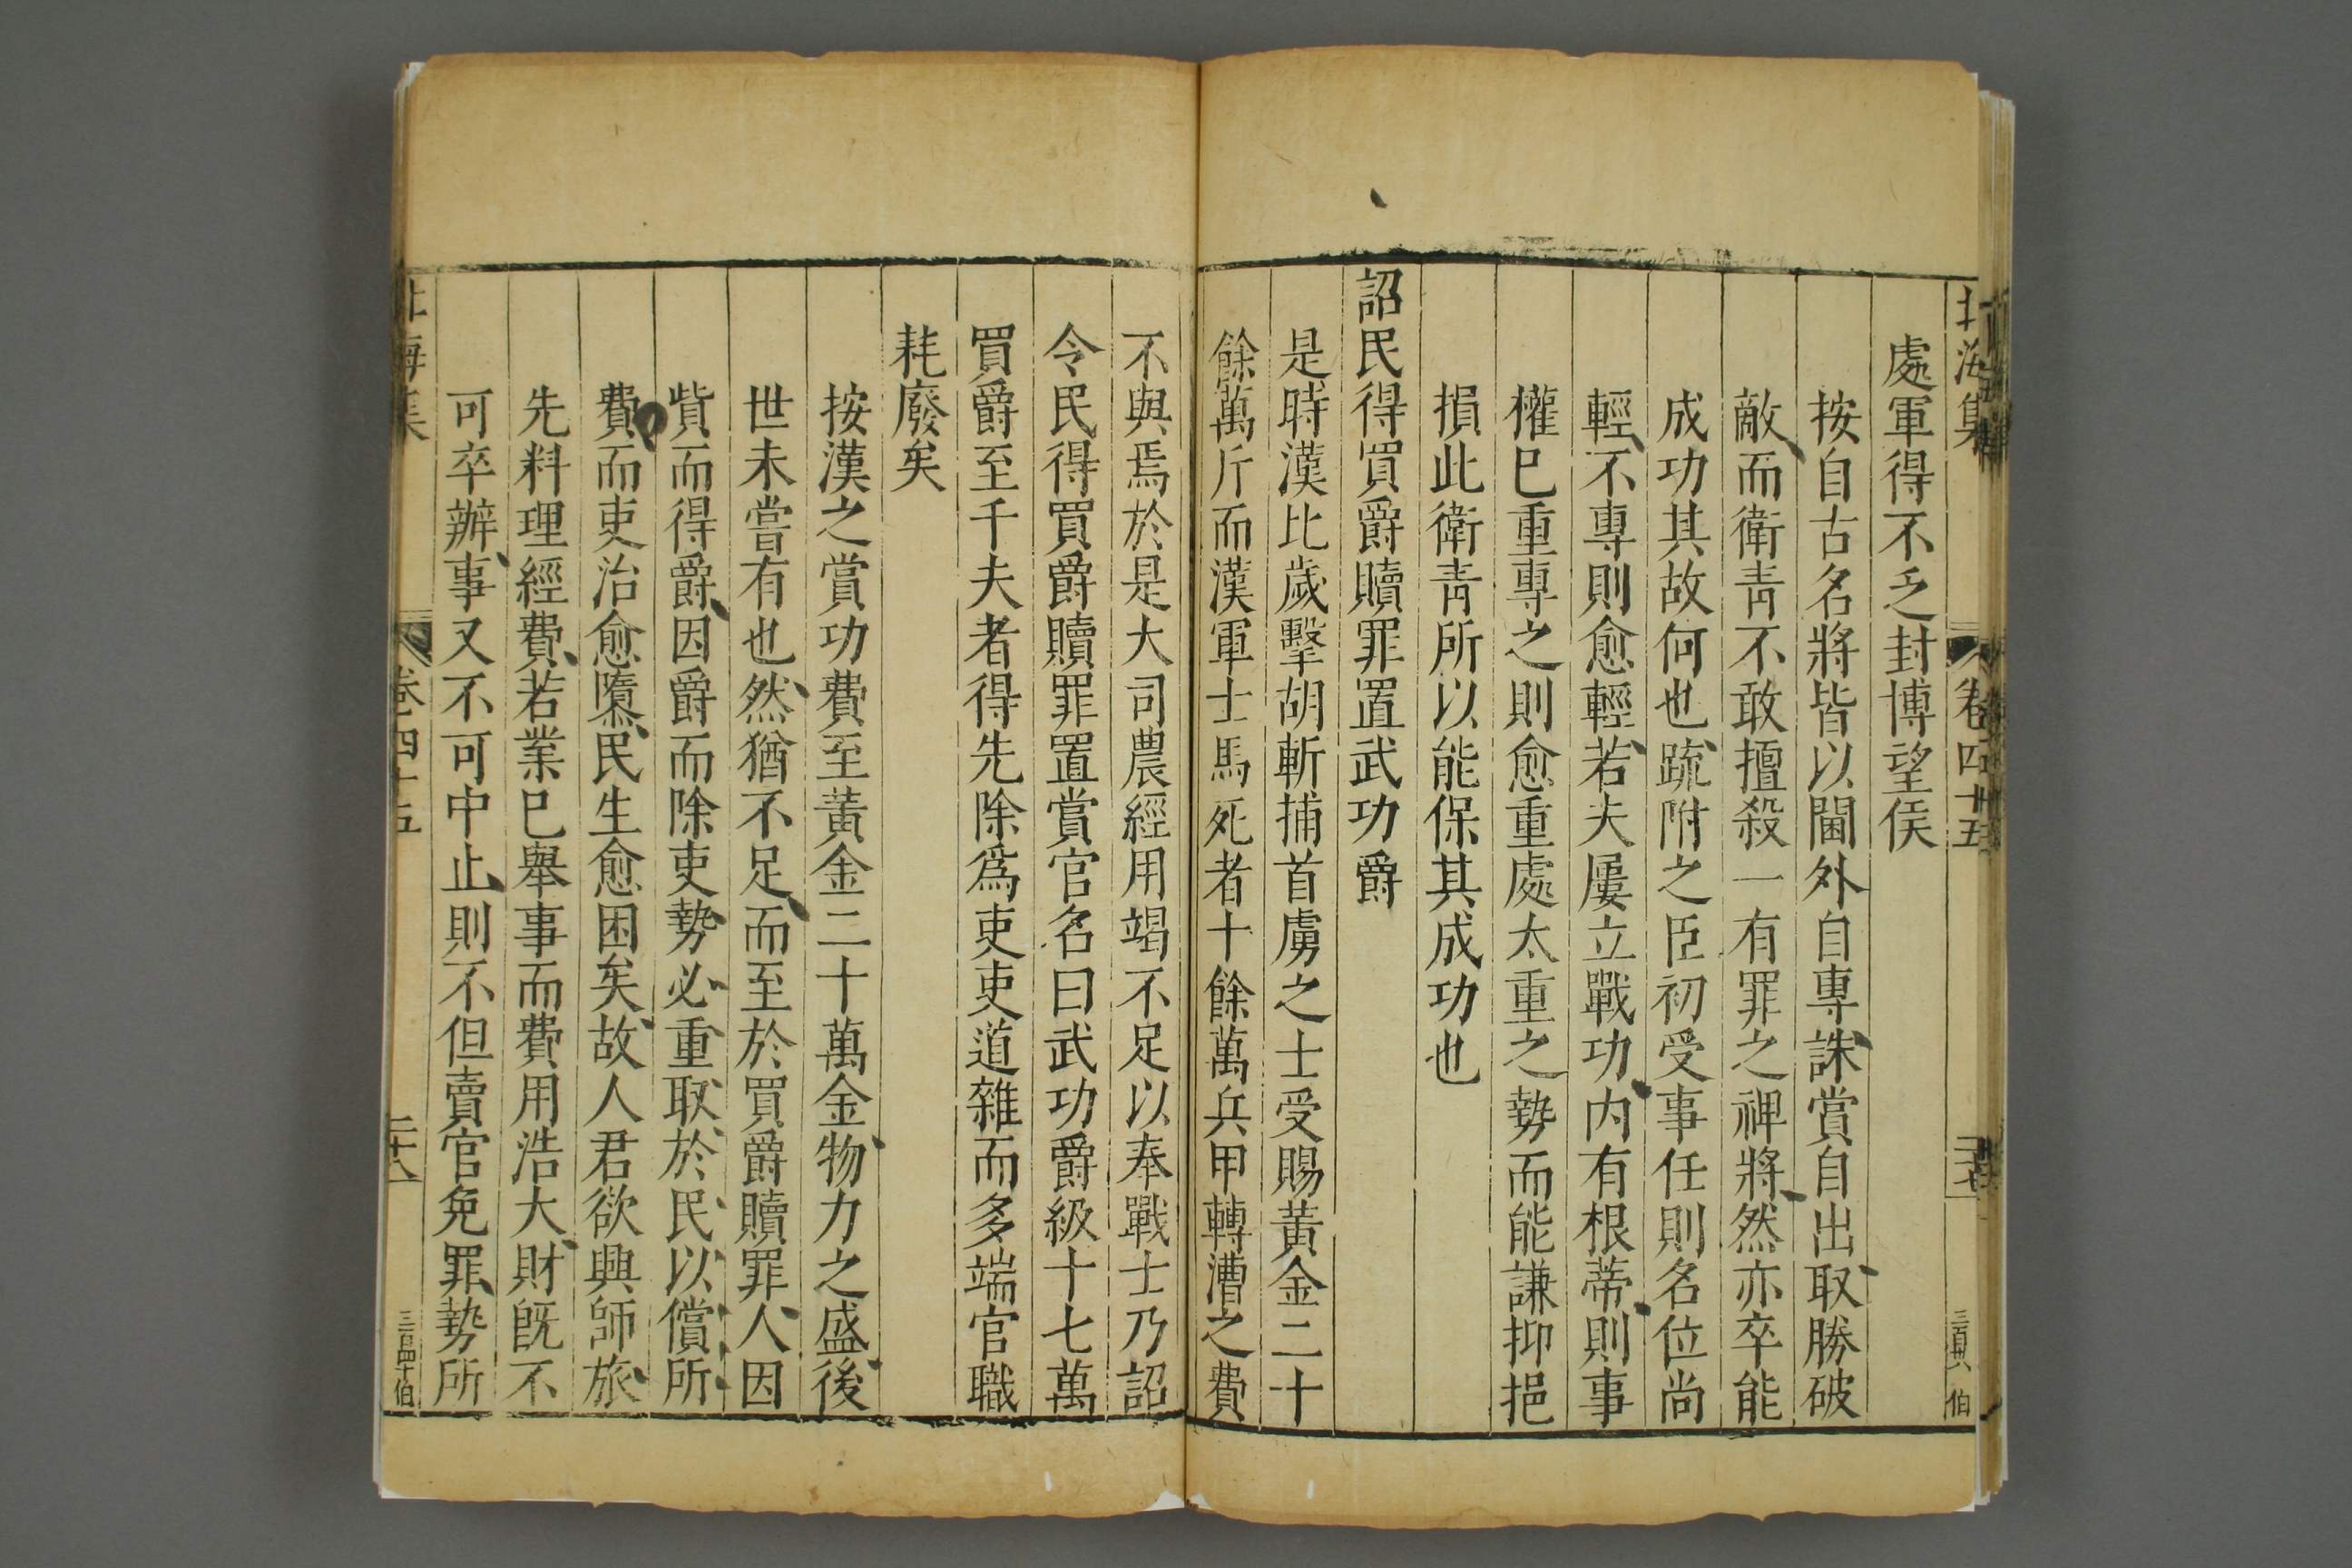 北海集
卷四十五
處軍得不乏封博望侯
按自古名將皆以閫外自專誅賞自出取勝破
敵而衛青不敢擅殺一有罪之裨將然亦卒能
成功其故何也疏附之臣初受事任則名位尚
輕不專則愈輕若夫屢立戰功內有根蒂則事
權已重專之則愈重處太重之勢而能謙抑挹
損此衛青所以能保其成功也
詔民得買爵贖罪置武功爵
是時漢比歲擊胡斬捕首虜之士受賜黃金二十
餘萬斤而漢軍士馬死者十餘萬兵甲轉漕之費
不與焉於是大司農經用竭不足以奉戰士乃詔
令民得買爵贖罪置賞官名曰武功爵級十七萬
買爵至千夫者得先除爲吏吏道雜而多端官職
耗廢矣
按漢之賞功費至黃金二十萬金物力之盛後
世未嘗有也然猶不足而至於買爵贖罪人因
貲而得爵因爵而除吏勢必重取於民以償所
費而吏治愈隳民生愈困矣故人君欲興師旅
先料理經費若業已舉事而費用浩大財旣不
可卒辦事又不可中止則不但賣官免罪勢所
北海集
卷四十五
二十八